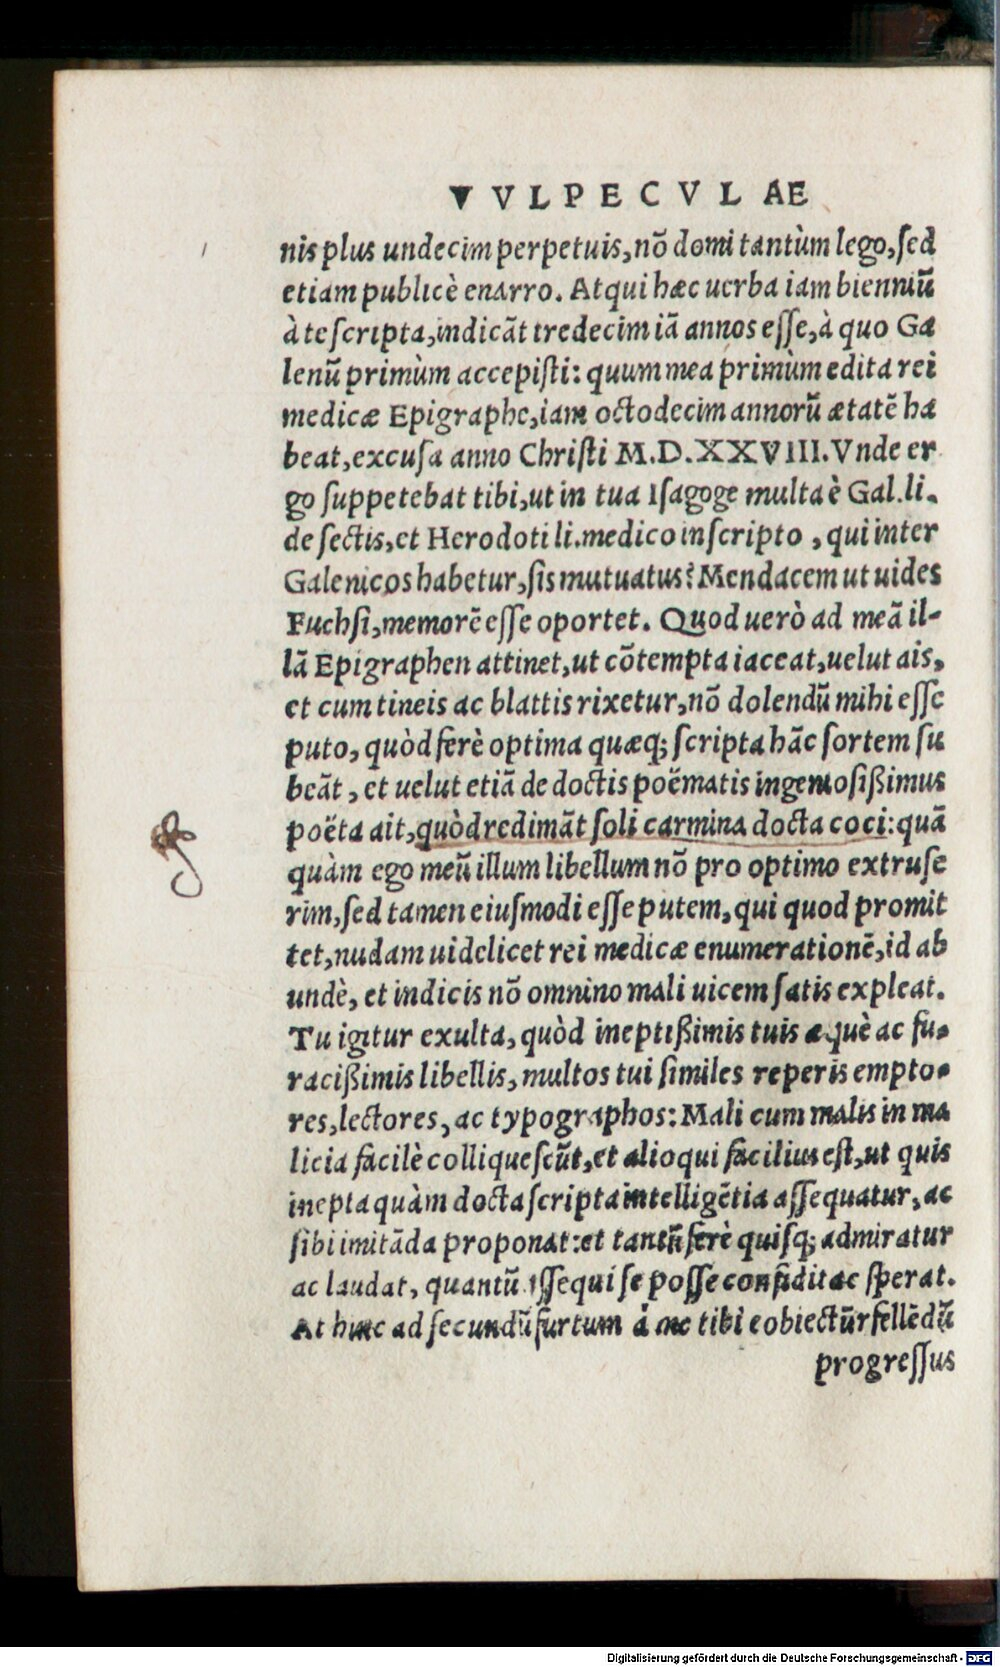 VVLPECVLAE
nis plus undecim perpetuis, nõ domi tantùm lego, sed
etiam publicè enarro. Atqui hæc uerba iam bienniũ
à te scripta, indicãt tredecim iã annos esse, à quo Ga
lenũ primùm accepisti: quum mea primùm edita rei
medicæ Epigraphe, iam octodecim annorũ ætatẽ ha
beat, excusa anno Christi M.D.XXVIII. Vnde er
go suppetebat tibi, ut in tua Isagoge multa è Gal.li.
de sectis, et Herodoti li. medico inscripto, qui inter
Galenicos habetur, sis mutuatus? Mendacem ut uides
Fuchsi, memorẽ esse oportet. Quod uerò ad meã il-
lã Epigraphen attinet, ut cõtempta iaceat, uelut ais,
et cum tineis ac blattis rixetur, nõ dolendũ mihi esse
puto, quòd ferè optima quæq; scripta hãc sortem su
beãt, et uelut etiã de doctis poëmatis ingeniosißimus
poëta ait, quòd redimãt soli carmina docta coci: quã
quàm ego meũ illum libellum nõ pro optimo extruse
rim, sed tamen eiusmodi esse putem, qui quod promit
tet, nudam uidelicet rei medicæ enumerationẽ, id ab
undè, et indicis nõ omnino mali uicem satis expleat.
Tu igitur exulta, quòd ineptißimis tuis æquè ac fu-
racißimis libellis, multos tui similes reperis empto-
res, lectores, ac typographos: Mali cum malis in ma
licia facilè colliquescũt, et alioqui facilius est, ut quis
inepta quàm docta scripta intelligẽtia assequatur, ac
sibi imitãda proponat: et tantũ ferè quisq; admiratur
ac laudat, quantũ assequi se posse confidit ac sperat.
At hinc ad secundũ furtum à me tibi eobiectũ refellẽdũ
progressus
Digitalisierung gefördert durch die Deutsche Forschungsgemeinschaft - DFG